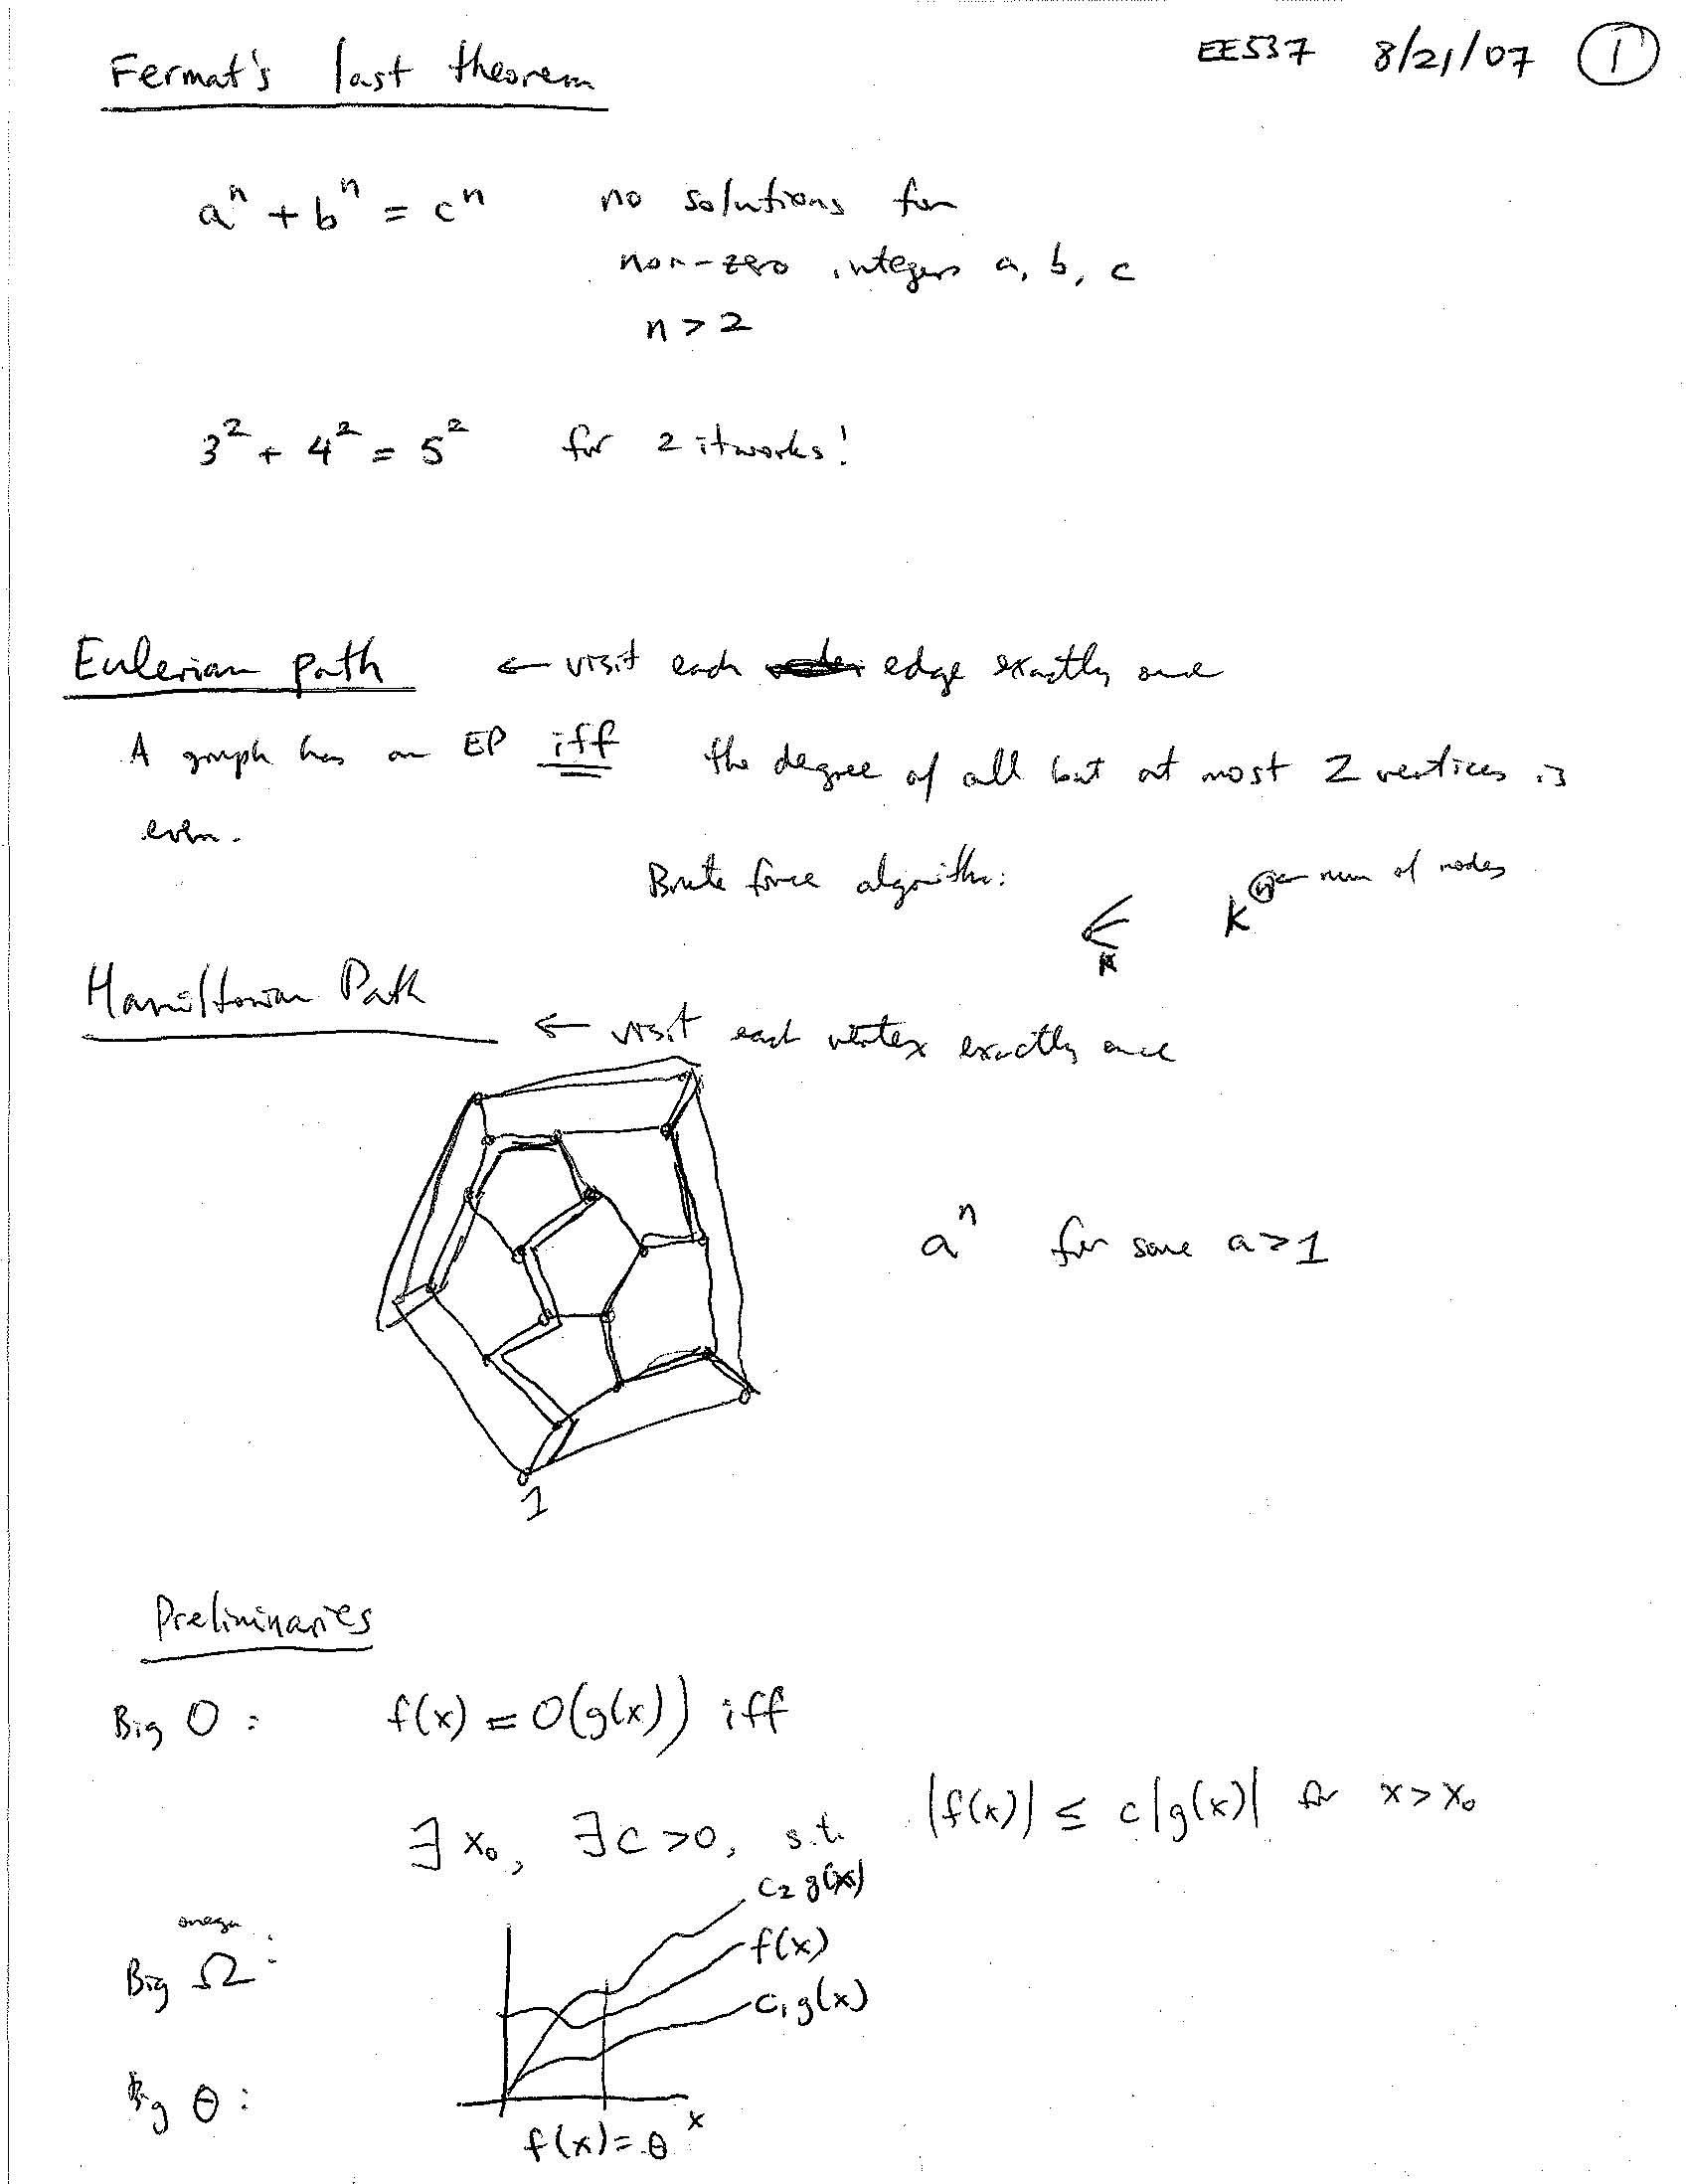 EE537 8/21/07 1
Fermat's last theorem
a^n + b^n = c^n no solutions for
non-zero integers a, b, c
n > 2
3^2 + 4^2 = 5^2 for 2 it works!
Eulerian path ← visit each edge exactly once
A graph has an EP iff the degree of all but at most 2 vertices is
even.
Brute force algorithm: k^n ← num of nodes
k
Hamiltonian Path
← visit each vertex exactly once
a^n for some a > 1
1
Preliminaries
Big O : f(x) = O(g(x)) iff
∃ x₀, ∃ c > 0, s.t. |f(x)| ≤ c|g(x)| for x > x₀
c₂ g(x)
omega
Big Ω :
f(x)
c₁ g(x)
Big θ :
x
f(x) = θ